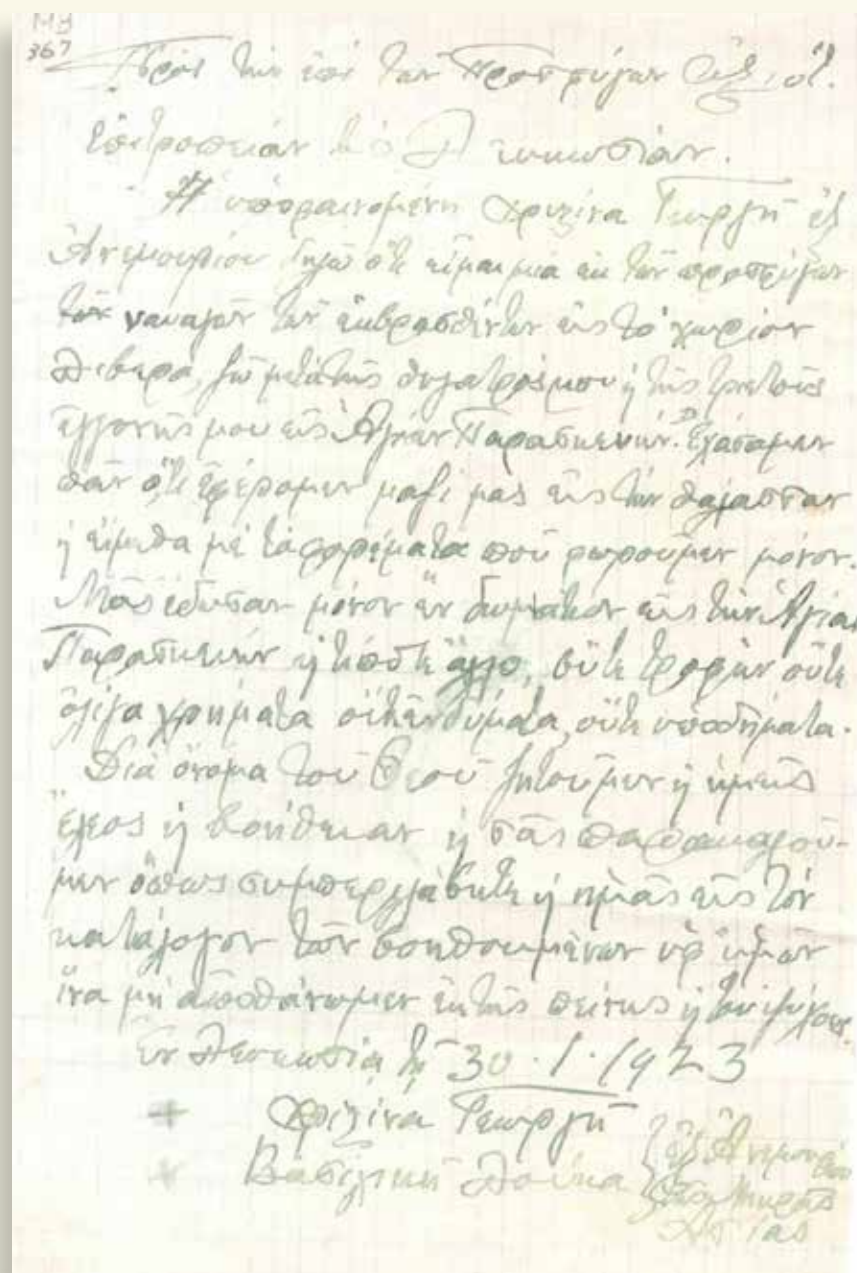 ΜΒ
367
Πρὸς τὴν ἐπὶ τῶν Προσφύγων Ἀξιότ.
Ἐπιτροπείαν διὰ Λευκωσίαν.
Ἡ ὑποφαινομένη Γεωργῆ ἐξ
Ἀνεμουρίου δηλῶ ὅτι εἶμαι μία ἐκ τῶν προσφύγων
τῶν ναυαγῶν τῶν ἐκβρασθέντων εἰς τὸ χωρίον
Λιβερά, ζῶ μετὰ τῆς θυγατρός μου ἡ τῆς τριετοῦς
ἐγγονῆς μου εἰς Ἁγίαν Παρασκευήν. Ἐχάσαμεν
πᾶν ὅτι ἐφέρομεν μαζί μας εἰς τὴν θάλασσαν
ἡ εἴμεθα μὲ τὰ φορέματα ποῦ φοροῦμεν μόνον.
Μᾶς ἔδωσαν μόνον ἓν δωμάτιον εἰς τὴν Ἁγίαν
Παρασκευήν ἡ τίποτε ἄλλο, οὔτε τροφὴν οὔτε
ὀλίγα χρήματα οὔτε ἐνδύματα, οὔτε ὑποδήματα.
Διὰ ὄνομα τοῦ Θεοῦ ζητοῦμεν ἡ ἡμεῖς
ἔλεος ἡ βοήθειαν ἡ σᾶς παρακαλοῦ-
μεν ὅπως συμπεριλάβητε ἡ ἡμᾶς εἰς τὸν
κατάλογον τῶν βοηθουμένων ὑφ' ὑμῶν
ἵνα μὴ ἀποθάνωμεν ἐκ τῆς πείνης ἡ τοῦ ψύχους.
Ἐν Λευκωσίᾳ τῇ 30.1.1923
+ Γεωργῆ
+ Βασιλικὴ Λουκᾶ
ἐξ Ἀνεμουρίου
τῆς Μικρᾶς
Ἀσίας